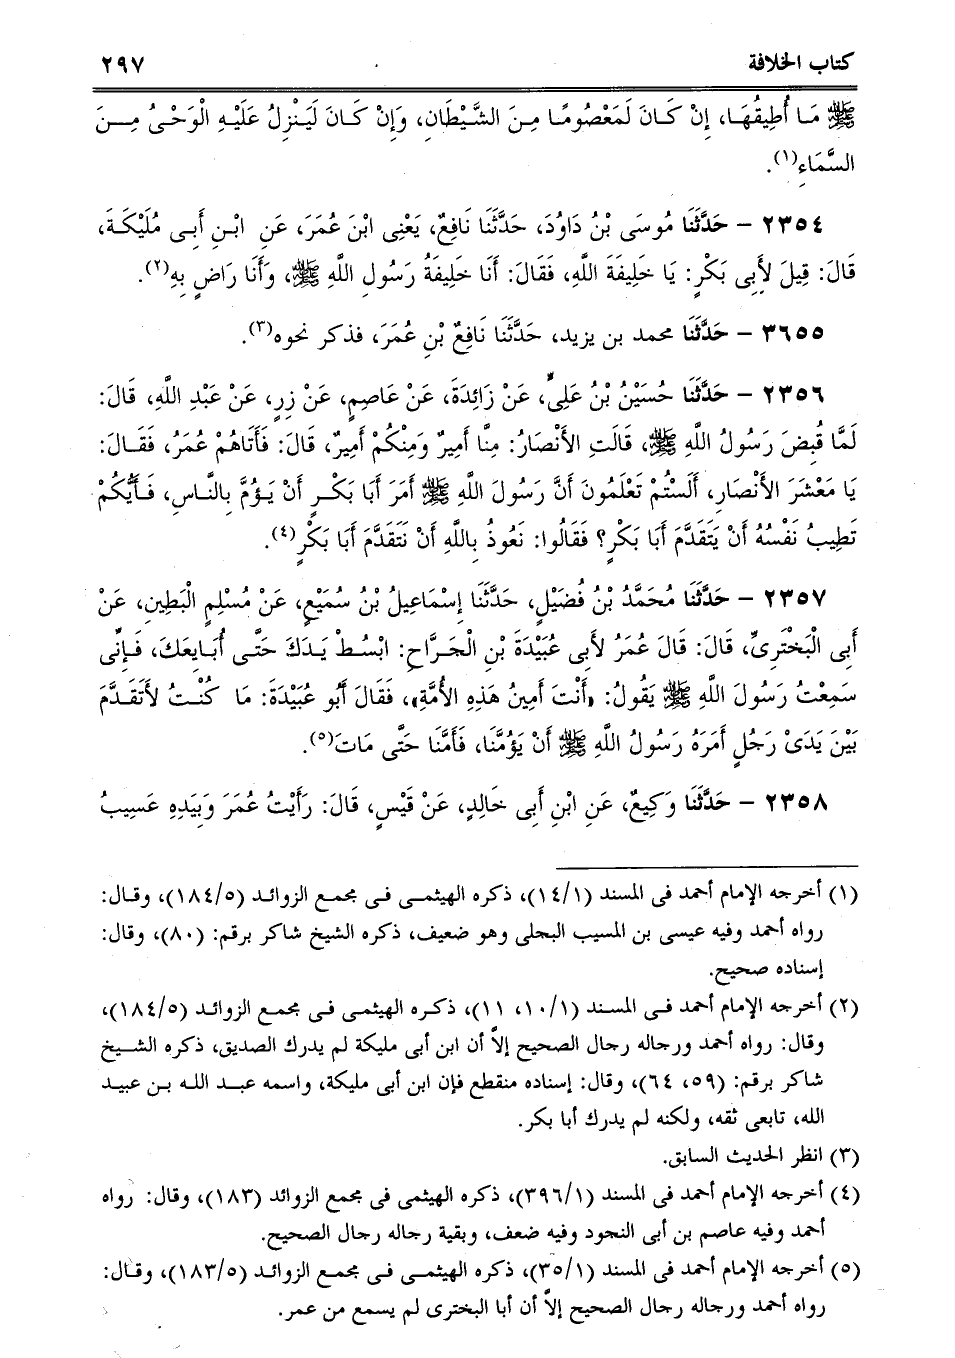 كتاب الخلافة ٢٩٧
ﷺ مَا أُطِيقُهَا، إِنْ كَانَ لَمَعْصُومًا مِنَ الشَّيْطَانِ، وَإِنْ كَانَ لَيَنْزِلُ عَلَيْهِ الْوَحْىُ مِنَ
السَّمَاءِ(١).
٢٣٥٤ – حَدَّثَنَا مُوسَى بْنُ دَاوُدَ، حَدَّثَنَا نَافِعٌ، يَعْنِى ابْنَ عُمَرَ، عَنِ ابْنِ أَبِى مُلَيْكَةَ،
قَالَ: قِيلَ لأَبِى بَكْرٍ: يَا خَلِيفَةَ اللَّهِ، فَقَالَ: أَنَا خَلِيفَةُ رَسُولِ اللَّهِ ﷺ، وَأَنَا رَاضٍ بِهِ(٢).
٣٦٥٥ – حَدَّثَنَا محمد بن يزيد، حَدَّثَنَا نَافِعٌ بْنِ عُمَرَ، فذكر نحوه(٣).
٢٣٥٦ – حَدَّثَنَا حُسَيْنُ بْنُ عَلِىٍّ، عَنْ زَائِدَةَ، عَنْ عَاصِمٍ، عَنْ زِرٍ، عَنْ عَبْدِ اللَّهِ، قَالَ:
لَمَّا قُبِضَ رَسُولُ اللَّهِ ﷺ، قَالَتِ الأَنْصَارُ: مِنَّا أَمِيرٌ وَمِنْكُمْ أَمِيرٌ، قَالَ: فَأَتَاهُمْ عُمَرُ، فَقَالَ:
يَا مَعْشَرَ الأَنْصَارِ، أَلَسْتُمْ تَعْلَمُونَ أَنَّ رَسُولَ اللَّهِ ﷺ أَمَرَ أَبَا بَكْرٍ أَنْ يَؤُمَّ بِالنَّاسِ، فَأَيُّكُمْ
تَطِيبُ نَفْسُهُ أَنْ يَتَقَدَّمَ أَبَا بَكْرٍ؟ فَقَالُوا: نَعُوذُ بِاللَّهِ أَنْ نَتَقَدَّمَ أَبَا بَكْرٍ(٤).
٢٣٥٧ – حَدَّثَنَا مُحَمَّدُ بْنُ فُضَيْلٍ، حَدَّثَنَا إِسْمَاعِيلُ بْنُ سُمَيْعٍ، عَنْ مُسْلِمٍ الْبَطِينِ، عَنْ
أَبِى الْبَخْتَرِىِّ، قَالَ: قَالَ عُمَرُ لأَبِى عُبَيْدَةَ بْنِ الْجَرَّاحِ: ابْسُطْ يَدَكَ حَتَّى أُبَايِعَكَ، فَإِنِّى
سَمِعْتُ رَسُولَ اللَّهِ ﷺ يَقُولُ: «أَنْتَ أَمِينُ هَذِهِ الأُمَّةِ»، فَقَالَ أَبُو عُبَيْدَةَ: مَا كُنْتُ لأَتَقَدَّمَ
بَيْنَ يَدَىْ رَجُلٍ أَمَرَهُ رَسُولُ اللَّهِ ﷺ أَنْ يَؤُمَّنَا، فَأَمَّنَا حَتَّى مَاتَ(٥).
٢٣٥٨ – حَدَّثَنَا وَكِيعٌ، عَنِ ابْنِ أَبِى خَالِدٍ، عَنْ قَيْسٍ، قَالَ: رَأَيْتُ عُمَرَ وَبِيَدِهِ عَسِيبُ
(١) أخرجه الإمام أحمد فى المسند (١/ ١٤)، ذكره الهيثمى فى مجمع الزوائد (٥/ ١٨٤)، وقال:
رواه أحمد وفيه عيسى بن المسيب البجلى وهو ضعيف، ذكره الشيخ شاكر برقم: (٨٠)، وقال:
إسناده صحيح.
(٢) أخرجه الإمام أحمد فى المسند (١/ ١٠، ١١)، ذكره الهيثمى فى مجمع الزوائد (٥/ ١٨٤)،
وقال: رواه أحمد ورجاله رجال الصحيح إلاَّ أن ابن أبى مليكة لم يدرك الصديق، ذكره الشيخ
شاكر برقم: (٥٩، ٦٤)، وقال: إسناده منقطع فإن ابن أبى مليكة، واسمه عبد الله بن عبيد
الله، تابعى ثقه، ولكنه لم يدرك أبا بكر.
(٣) انظر الحديث السابق.
(٤) أخرجه الإمام أحمد فى المسند (١/ ٣٩٦)، ذكره الهيثمى فى مجمع الزوائد (١٨٣)، وقال: رواه
أحمد وفيه عاصم بن أبى النجود وفيه ضعف، وبقية رجاله رجال الصحيح.
(٥) أخرجه الإمام أحمد فى المسند (١/ ٣٥)، ذكره الهيثمى فى مجمع الزوائد (٥/ ١٨٣)، وقال:
رواه أحمد ورجاله رجال الصحيح إلاَّ أن أبا البخترى لم يسمع من عمر.